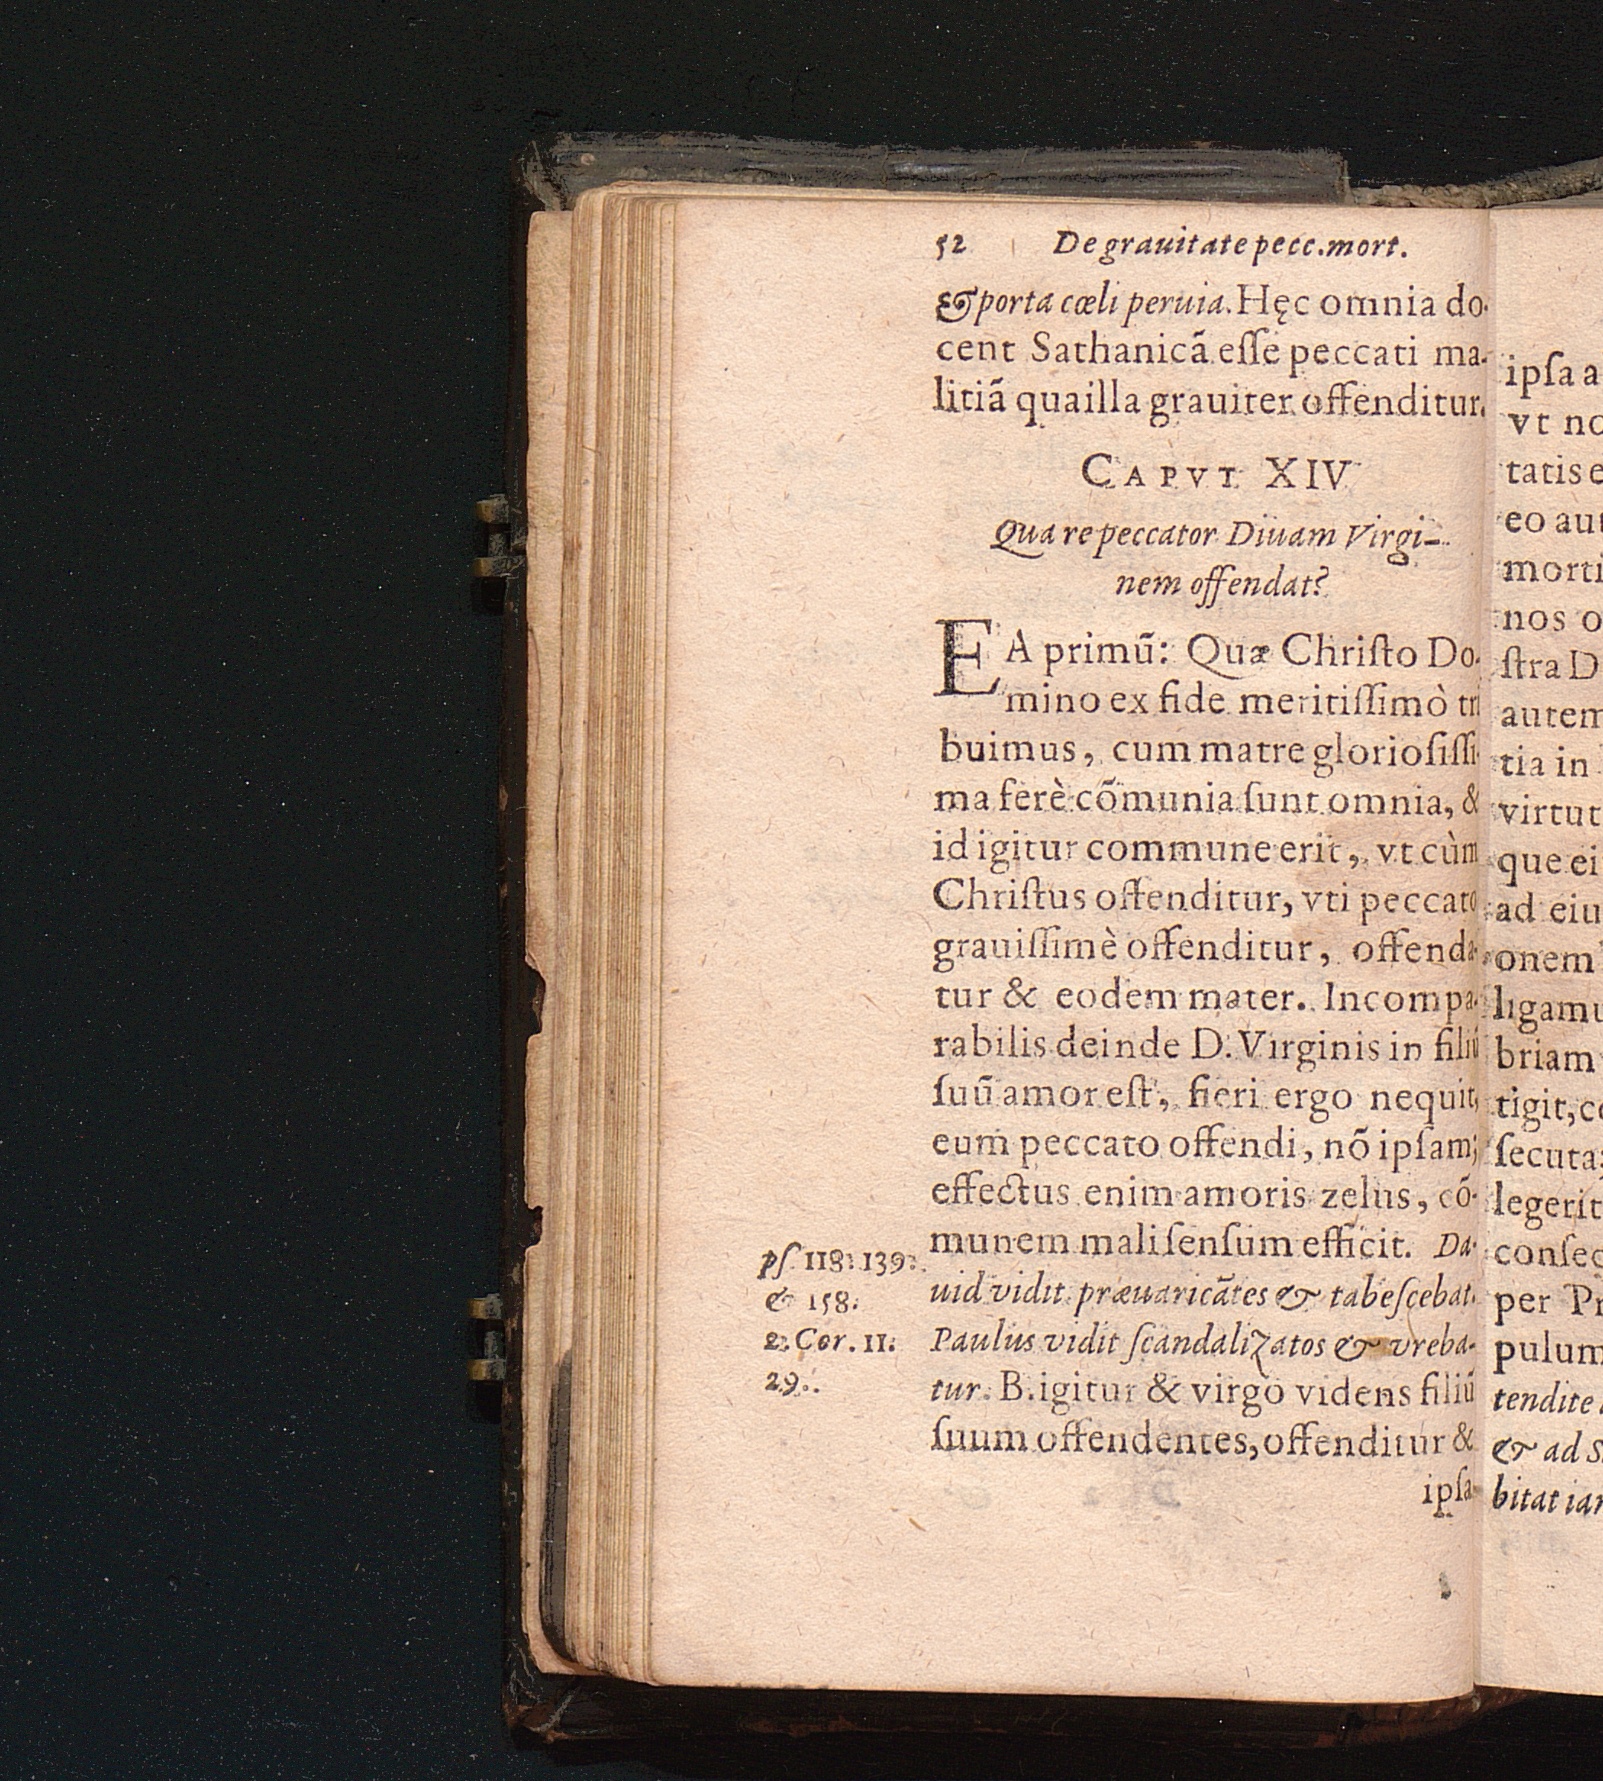 52 De grauitate pecc. mort.
& porta cœli peruia. Hęc omnia do-
cent Sathanicã esse peccati ma-
litiã qua illa grauiter offenditur.
CAPVT XIV
Qua re peccator Diuam Virgi-
nem offendat?
EA primũ: Quæ Christo Do-
mino ex fide meritissimò tri
buimus, cum matre gloriosissi-
ma ferè cõmunia sunt omnia, &
id igitur commune erit, vt cùm
Christus offenditur, vti peccato
grauissimè offenditur, offenda-
tur & eodem mater. Incompa-
rabilis deinde D. Virginis in filiũ
suũ amor est, fieri ergo nequit,
eum peccato offendi, nõ ipsam;
effectus enim amoris zelus, cõ-
munem mali sensum efficit. Da-
uid vidit præuaricãtes & tabescebat.
Paulus vidit scandalizatos & vreba-
tur. B. igitur & virgo videns filiũ
suum offendentes, offenditur &
ipsa
ps. 118: 139:
& 158.
2. Cor. 11:
29.
ipsa a
vt no
tatis e
eo aut
morti
nos o
stra D
autem
tia in
virtut
que ei
ad eiu
onem
ligamu
briam
tigit, co
secuta:
legerit
consec
per Pr
pulum
tendite
& ad S
bitat iar